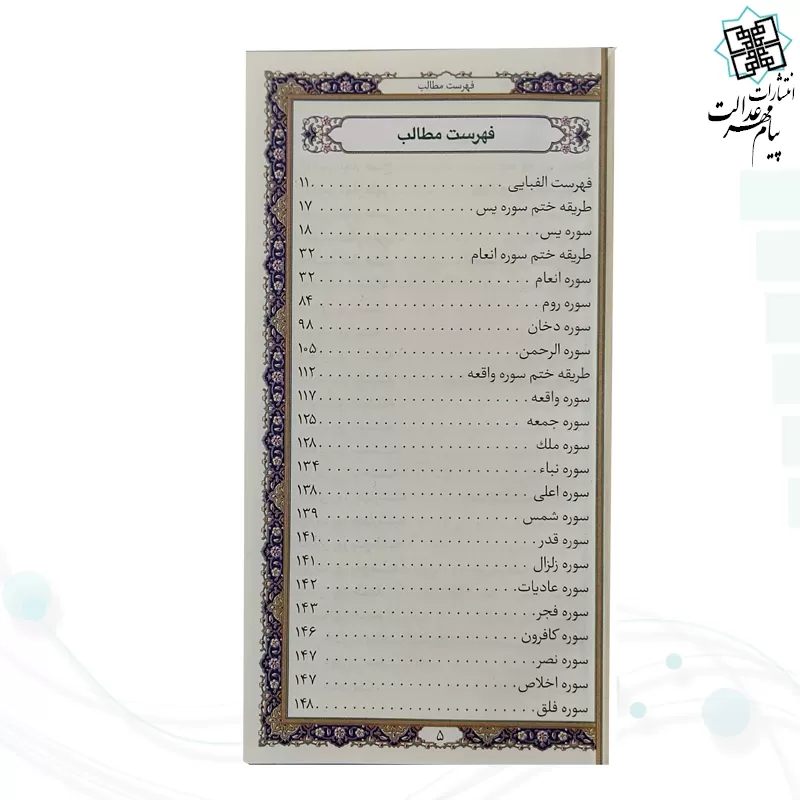 انتشارات
پیام مهر عدالت
فهرست مطالب
فهرست مطالب
فهرست الفبایی . . . . . . . . . . . . . . . . . . . . ۱۱
طریقه ختم سوره یس . . . . . . . . . . . . . . . . ۱۷
سوره یس . . . . . . . . . . . . . . . . . . . . . . . ۱۸
طریقه ختم سوره انعام . . . . . . . . . . . . . . . ۳۲
سوره انعام . . . . . . . . . . . . . . . . . . . . . . ۳۲
سوره روم . . . . . . . . . . . . . . . . . . . . . . . ۸۴
سوره دخان . . . . . . . . . . . . . . . . . . . . . . ۹۸
سوره الرحمن . . . . . . . . . . . . . . . . . . . . ۱۰۵
طریقه ختم سوره واقعه . . . . . . . . . . . . . . . ۱۱۲
سوره واقعه . . . . . . . . . . . . . . . . . . . . . ۱۱۷
سوره جمعه . . . . . . . . . . . . . . . . . . . . . ۱۲۵
سوره ملك . . . . . . . . . . . . . . . . . . . . . . ۱۲۸
سوره نباء . . . . . . . . . . . . . . . . . . . . . . ۱۳۴
سوره اعلی . . . . . . . . . . . . . . . . . . . . . ۱۳۸
سوره شمس . . . . . . . . . . . . . . . . . . . . . ۱۳۹
سوره قدر . . . . . . . . . . . . . . . . . . . . . . ۱۴۱
سوره زلزال . . . . . . . . . . . . . . . . . . . . . ۱۴۱
سوره عادیات . . . . . . . . . . . . . . . . . . . . ۱۴۲
سوره فجر . . . . . . . . . . . . . . . . . . . . . . ۱۴۳
سوره کافرون . . . . . . . . . . . . . . . . . . . . ۱۴۶
سوره نصر . . . . . . . . . . . . . . . . . . . . . . ۱۴۷
سوره اخلاص . . . . . . . . . . . . . . . . . . . . ۱۴۷
سوره فلق . . . . . . . . . . . . . . . . . . . . . . ۱۴۸
۵